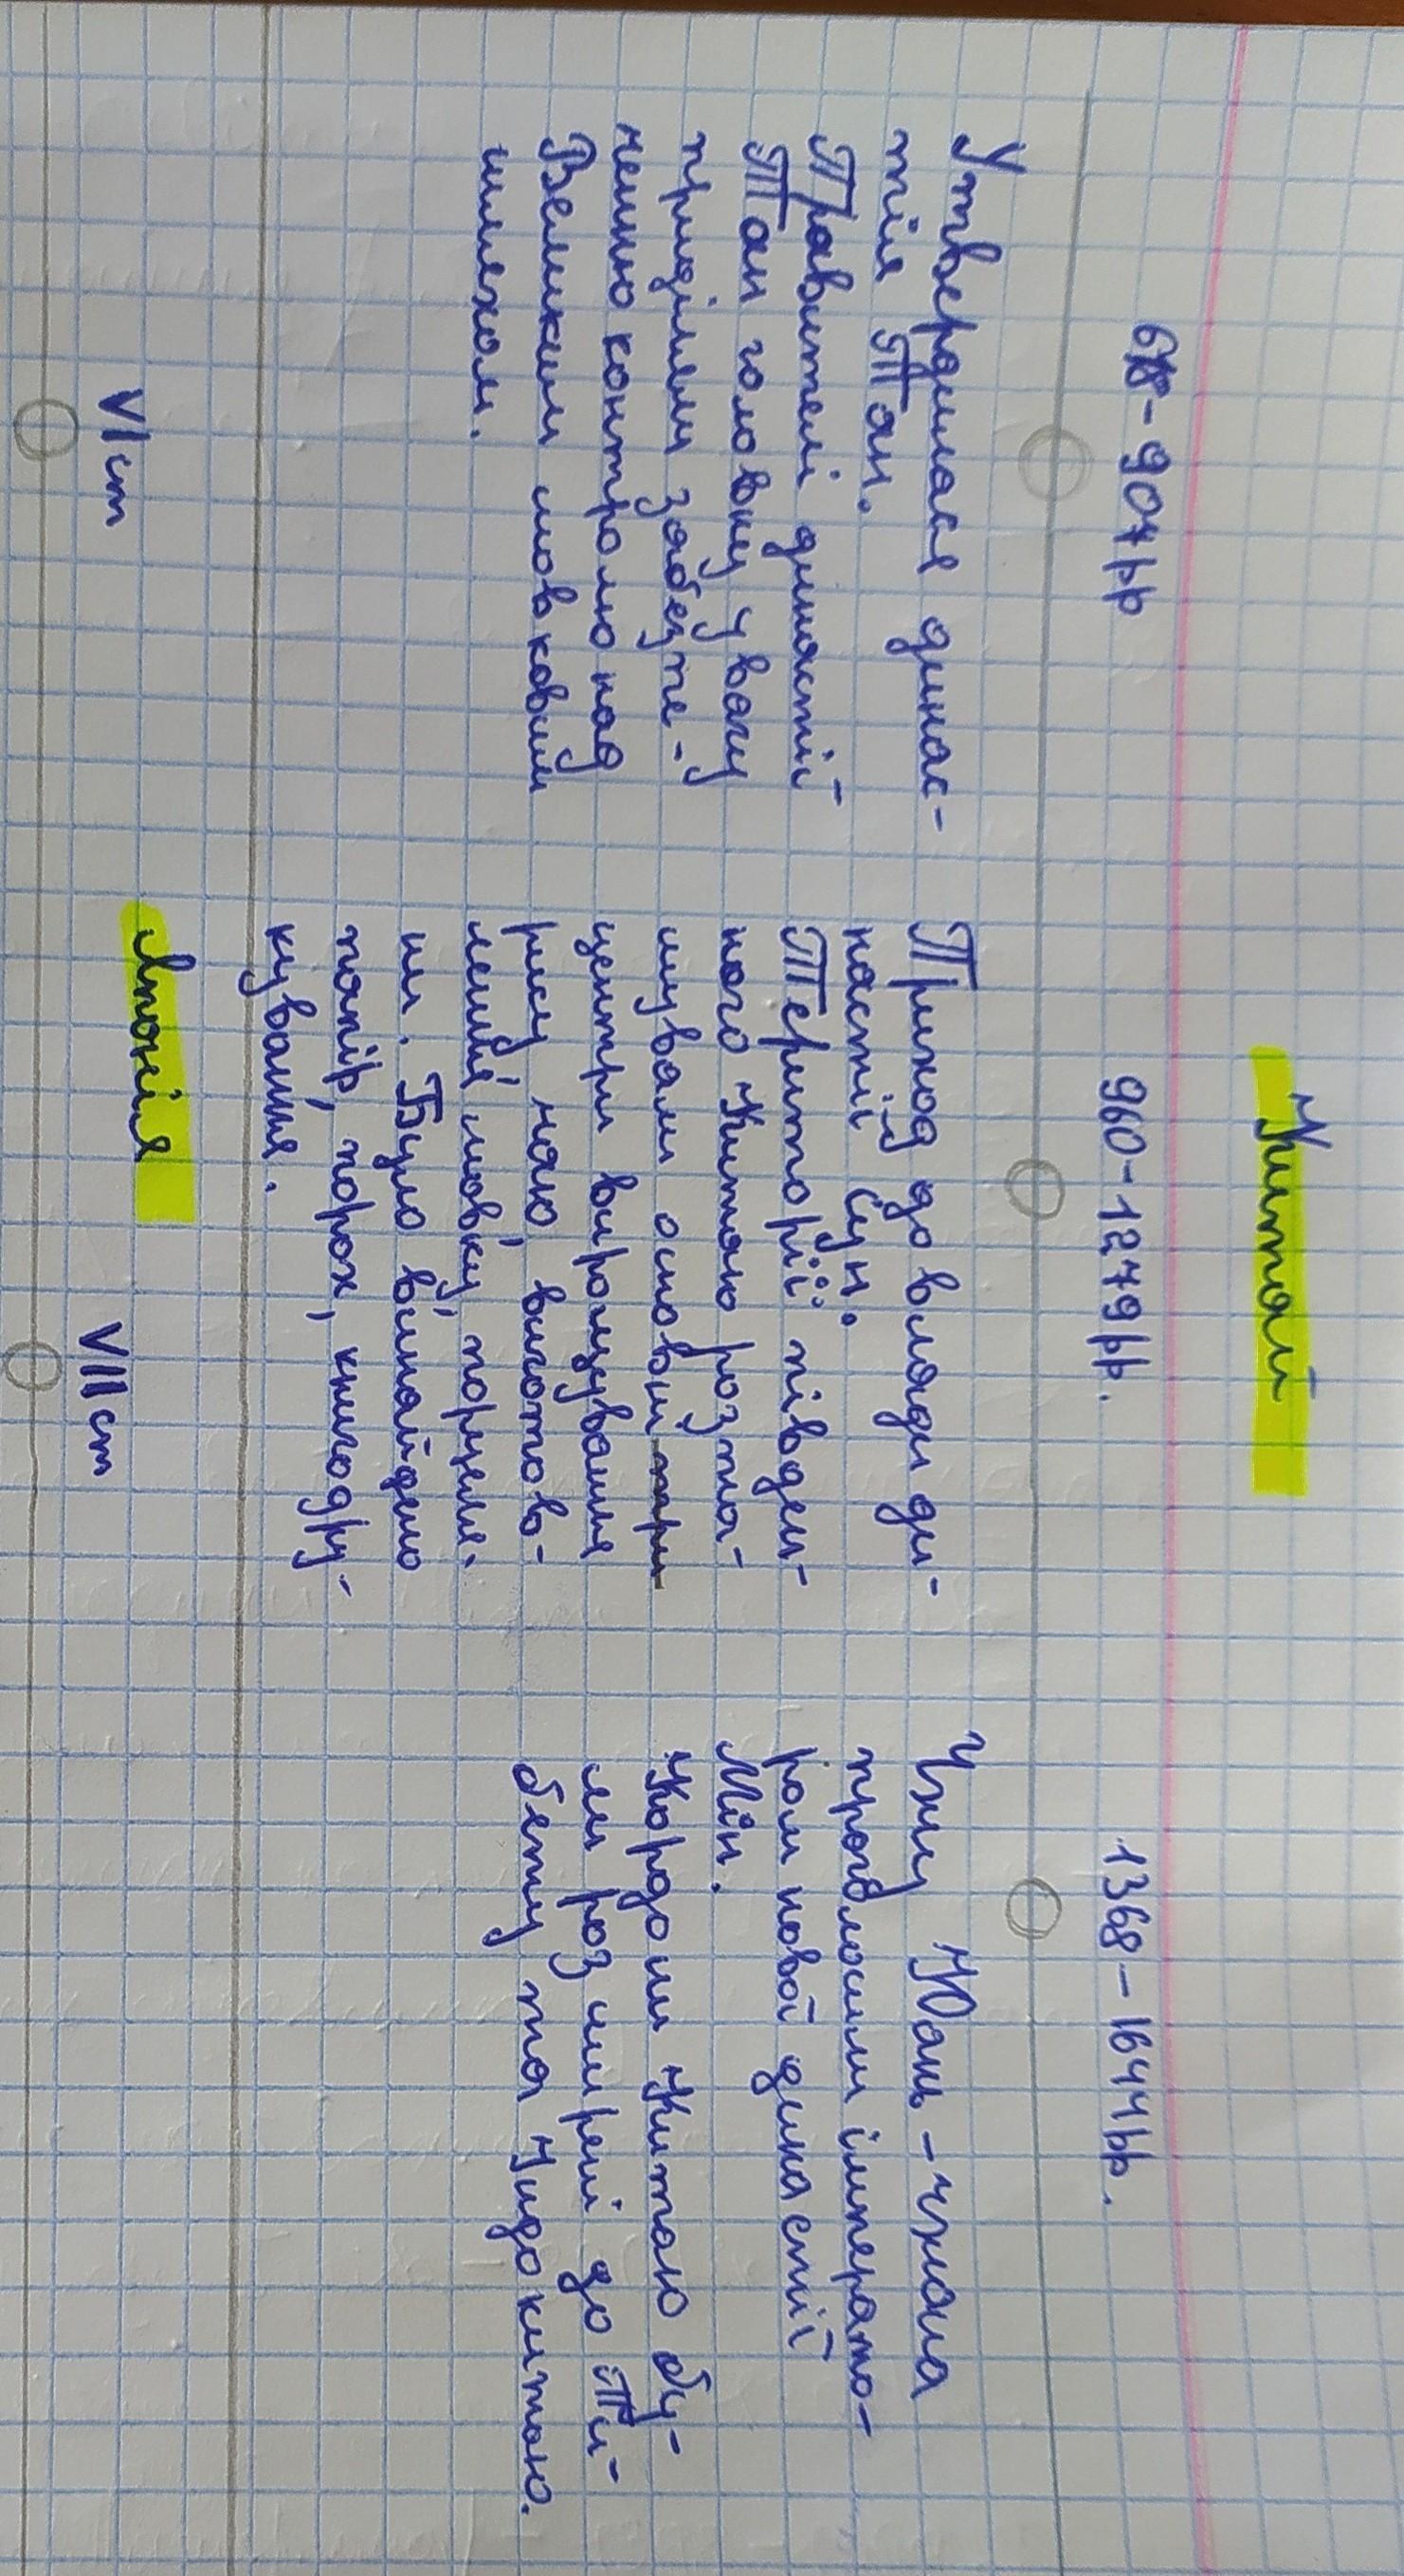 Китай
618-907рр
960-1279рр.
1368-1644рр.
Утвердилася динас-
тія Тан.
Правителі династії
Тан головну увагу
приділяли забезпе-
ченню контролю над
Великим шовковим
шляхом.
Прихід до влади ди-
настії Сун.
Території південн-
ного Китаю розта-
шували основні три
центри вирощування
рису, чаю, виготов-
лення шовку, порцеля.
ни. Було винайдено
папір, порох, книгодру-
кування.
Чжу Юань-чжана
проголосили імперато-
ром нової династії
Мін.
Кордони Китаю бу-
ли розширені до Ти-
бету та Індокитаю.
Японія
VI ст
VII ст